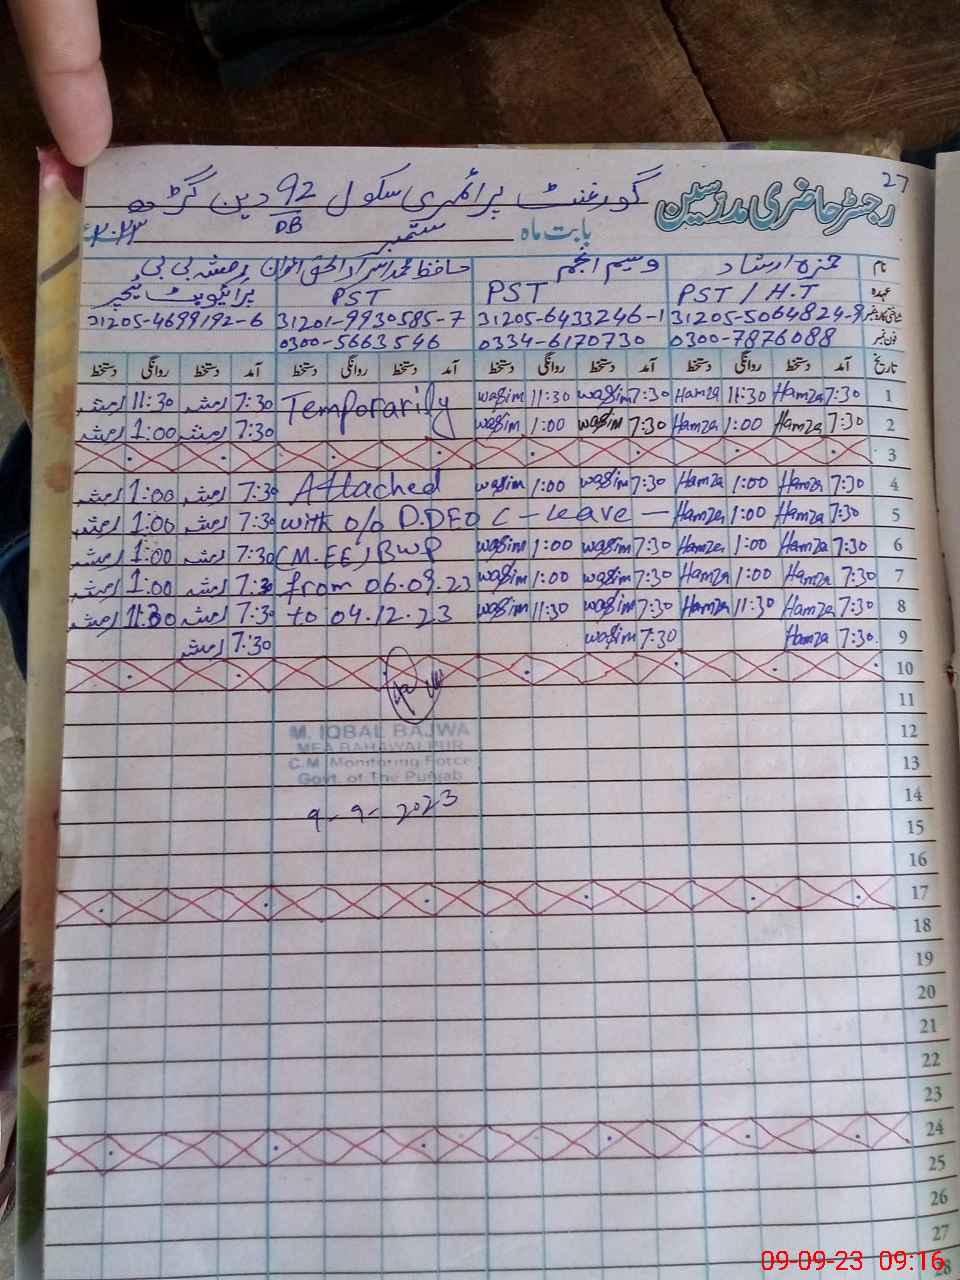 27
رجسٹر حاضری مدرسین
گورنمنٹ پرائمری سکول 92 دین گڑھ
DB
بابت ماہ ستمبر ۲۰۲۳
نام حمزہ ارشاد وسیم انجم حافظ محمد اسرار الحق اعوان رمشہ بی بی
عہدہ PST / H.T PST PST پرائیویٹ ٹیچر
شناختی کارڈ نمبر 31205-5064824-9 31205-6433246-1 31201-9930585-7 31205-4699192-6
فون نمبر 0300-7876088 0334-6170730 0300-5663546
تاریخ آمد دستخط روانگی دستخط آمد دستخط روانگی دستخط آمد دستخط روانگی دستخط آمد دستخط روانگی دستخط
1 7:30 Hamza 11:30 Hamza 7:30 wasim 11:30 wasim Temporarily 7:30 رمشہ 11:30 رمشہ
2 7:30 Hamza 1:00 Hamza 7:30 wasim 1:00 wasim 7:30 رمشہ 1:00 رمشہ
3
4 7:30 Hamza 1:00 Hamza 7:30 wasim 1:00 wasim Attached 7:30 رمشہ 1:00 رمشہ
5 7:30 Hamza 1:00 Hamza C - Leave - with o/o D.DEO 7:30 رمشہ 1:00 رمشہ
6 7:30 Hamza 1:00 Hamza 7:30 wasim 1:00 wasim (M.EE) BWP 7:30 رمشہ 1:00 رمشہ
7 7:30 Hamza 1:00 Hamza 7:30 wasim 1:00 wasim from 06.09.23 7:30 رمشہ 1:00 رمشہ
8 7:30 Hamza 11:30 Hamza 7:30 wasim 11:30 wasim to 04.12.23 7:30 رمشہ 11:30 رمشہ
9 7:30 Hamza 7:30 wasim 7:30 رمشہ
10
11
12
M. IQBAL BAJWA
MEA BAHAWALPUR
13
C.M Monitoring Force
Govt. of The Punjab
14
9-9-2023
15
16
17
18
19
20
21
22
23
24
25
26
27
28
09-09-23 09:16